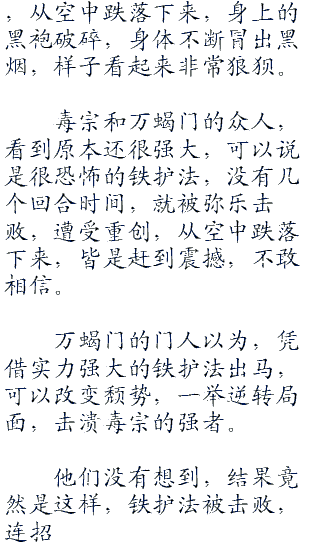 ，从空中跌落下来，身上的
黑袍破碎，身体不断冒出黑
烟，样子看起来非常狼狈。
毒宗和万蝎门的众人，
看到原本还很强大，可以说
是很恐怖的铁护法，没有几
个回合时间，就被弥乐击
败，遭受重创，从空中跌落
下来，皆是赶到震撼，不敢
相信。
万蝎门的门人以为，凭
借实力强大的铁护法出马，
可以改变颓势，一举逆转局
面，击溃毒宗的强者。
他们没有想到，结果竟
然是这样，铁护法被击败，
连招